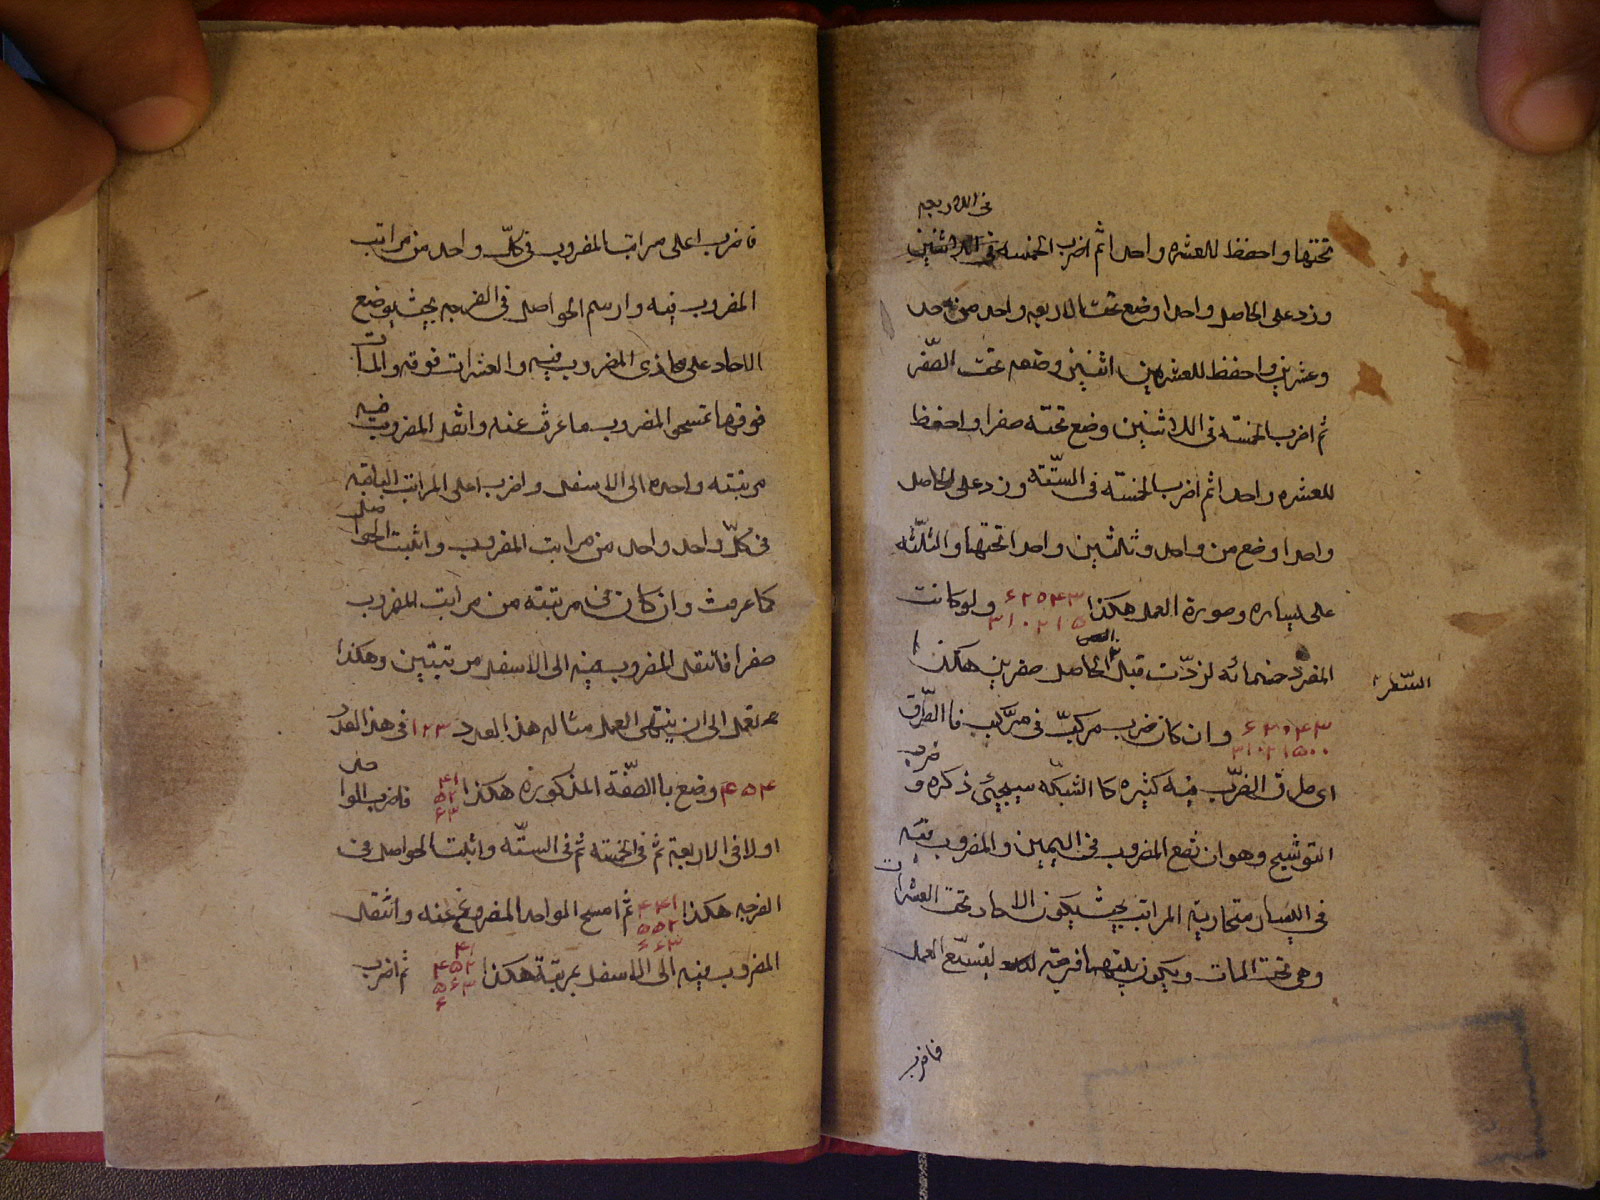 فى الاربعه
تحتها واحفظ للعشره واحدا ثم اضرب الخمسه
وزد على الحاصل واحدا وضع تحت الاربعه واحد من احد
وعشرين واحفظ للعشرين اثنين وضعه تحت الصّفر
ثم اضرب الخمسّه فى الاثنين وضع تحته صفرا واحفظ
للعشره واحدا ثم اضرب الخمسّه فى السّتّه وزد على الحاصل
واحدا وضع من واحد وثلثين واحدا تحتها والثلثه
على يساره وصورة العمل هكذا ۶۲۰۴۳ ولو كانت
۳۱۰۲۱۵
المفرد خمسائه لزدّت قبل الحاصل صفرين هكذا
السّطر
۶۲۰۴۳ وان كان ضرب مركبّ فى مرّكب فا الطّرق
۳۱۰۲۱۵۰۰
اى طرق الضّرب فيه كثيره كا الشبكّه سيجئ ذكره و ضرب
التوشيح وهو ان تضع المضروب فى اليمين والمضروب فيه
فى اليسار متحاذية المراتب بحيث يكون الاحاد تحت العشرات
وهى تحت المات ويكون بينهما فرجة ليتسّع العمل
فاضرب
فاضرب اعلى مراتب المضروب فى كلّ واحد من مراتب
المضروب فيه وارسم الحواصل فى الفرجه بحيث يوضع
الاحاد على محاذى المضروب فيه والعشرات فوقه والمات
فوقها تمسحى المضروب ما عرفت عنه وانقل المضروب فيه
مرتبته واحده الى الاسفل واضرب اعلى المراتب الباقيه
فى كلّ واحد واحد من مراتب المضروب واثبت الحواصل
كما عرفت وان كان فى مرتبته من مراتب المضروب
صفرا فانقل المضروب فيه الى الاسفل مرتبتين وهكذا
تعمل الى ان ينتهى العمل مثاله هذا العدد ۱۲۳ فى هذا العدد
۴۵۴ وضع باالصّفة المذكوره هكذا ۴۱ ۵۲ ۶۳ فاضرب الواحد
اولا فى الاربعة ثم فى الخمسه ثم فى السّتّه واثبت الحواصل فى
الفرجه هكذا ۴۴۱ ۵۵۲ ۶۶۳ ثم امسح الواحد المفروغ عنه وانقل
المضروب فيه الى الاسفل بمرتبة هكذا ۴۱ ۴۵۲ ۵۶۳ ۶ ثم اضرب